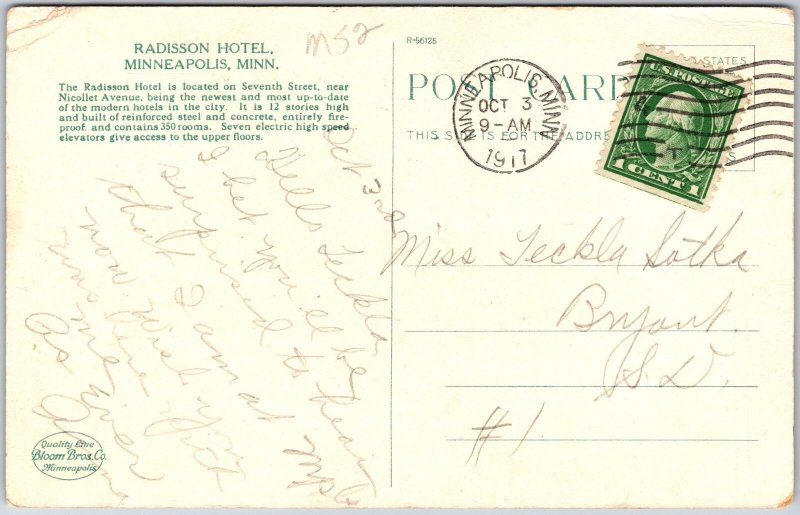 RADISSON HOTEL,
MINNEAPOLIS, MINN.
The Radisson Hotel is located on Seventh Street, near
Nicollet Avenue, being the newest and most up-to-date
of the modern hotels in the city. It is 12 stories high
and built of reinforced steel and concrete, entirely fire-
proof and contains 350 rooms. Seven electric high speed
elevators give access to the upper floors.
M52
Oct 3rd
Hello Teckla
I bet you'll be
surprised to hear
that I am at Mpls
now. Wish you
was here with
me
As ever
Quality Line
Bloom Bros. Co.
Minneapolis
R-56125
POST CARD
THIS SIDE IS FOR THE ADDRE
STATES
MINNEAPOLIS, MINN.
OCT 3
9-AM
1917
U.S. POSTAGE
1 CENT 1
Miss Teckla Sotka
Bryant.
S.D.
#1